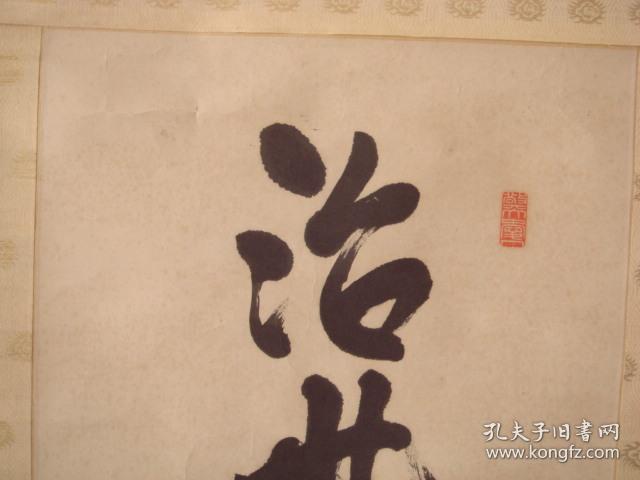 治世
孔夫子旧書网
www.kongfz.com